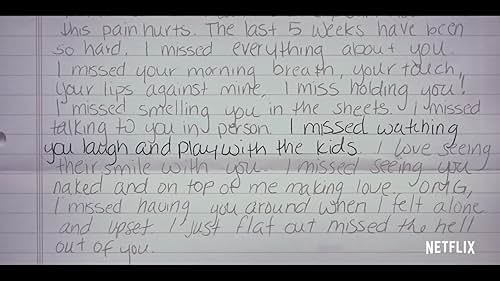 this pain hurts. The last 5 weeks have been
so hard. I missed everything about you.
I missed your morning breath, your touch,
your lips against mine. I miss holding you!
I missed smelling you in the sheets. I missed
talking to you in person. I missed watching
you laugh and play with the kids. I love seeing
their smile with you. I missed seeing you
naked and on top of me making love. OMG,
I missed having you around when I felt alone
and upset. I just flat out missed the hell
out of you.
NETFLIX